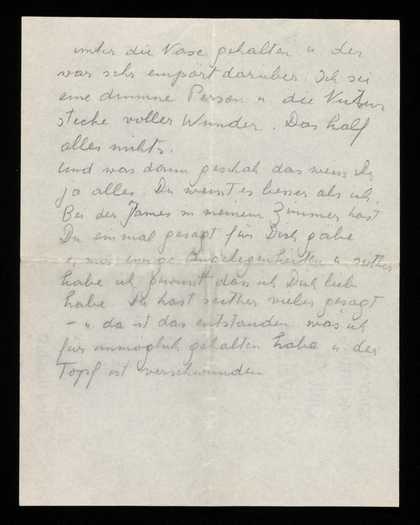 unter die Nase gehalten u der
war sehr empört darüber. Ich sei
eine dumme Person u die Natur
stecke voller Wunder. Das half
alles nichts.
Und was dann geschah das weisst Du
ja alles. Du weisst es besser als ich.
Bei der James in meinem Zimmer hast
Du einmal gesagt für Dich gäbe
es nur ewige u seither
habe ich gewusst dass ich Dich liebe
habe. Du hast seither vieles gesagt
– u da ist das entstanden was ich
für unmöglich gehalten habe u der
Topf ist verschwunden